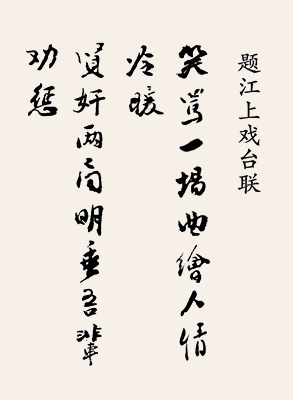 题江上戏台联
笑骂一場曲繪人情
冷暖
贤奸两局明垂吾輩
劝惩